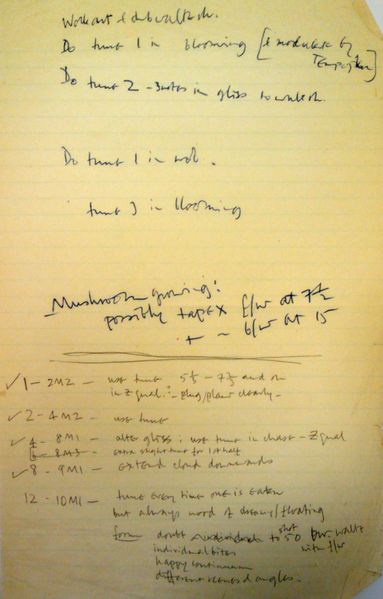 Work out
Do tune 1 in blooming [& modulate by
Do tune 2 - 3 notes in gliss
Do tune 1 in
tune 3 in blooming
Mushroom growing:
possibly tape X f/w at 7½
+ ~ b/w at 15
✓ 1 - 2M2 - use tune 5½ - 7½ and
in Z qual: - plug/place clearly -
✓ 2 - 4M2 - use tune
✓ 4 - 8M1 - alter gliss: use tune in chase - Z qual
6 - 8M3 - extra slight tune for 1st half
✓ 8 - 9M1 - extend cloud downwards
12 - 10M1 - tune every time one is eaten
but always mood of dreamy/floating
form doubt to shot 50 bw. waltz
individual bites with f/w
happy continuum
different angles.